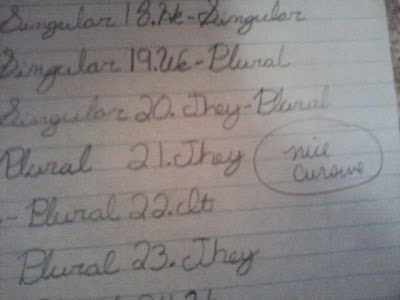 Singular 18. He-Singular
Singular 19. We-Plural
Singular 20. They-Plural
Plural 21. They
nice
cursive
- Plural 22. It
Plural 23. They